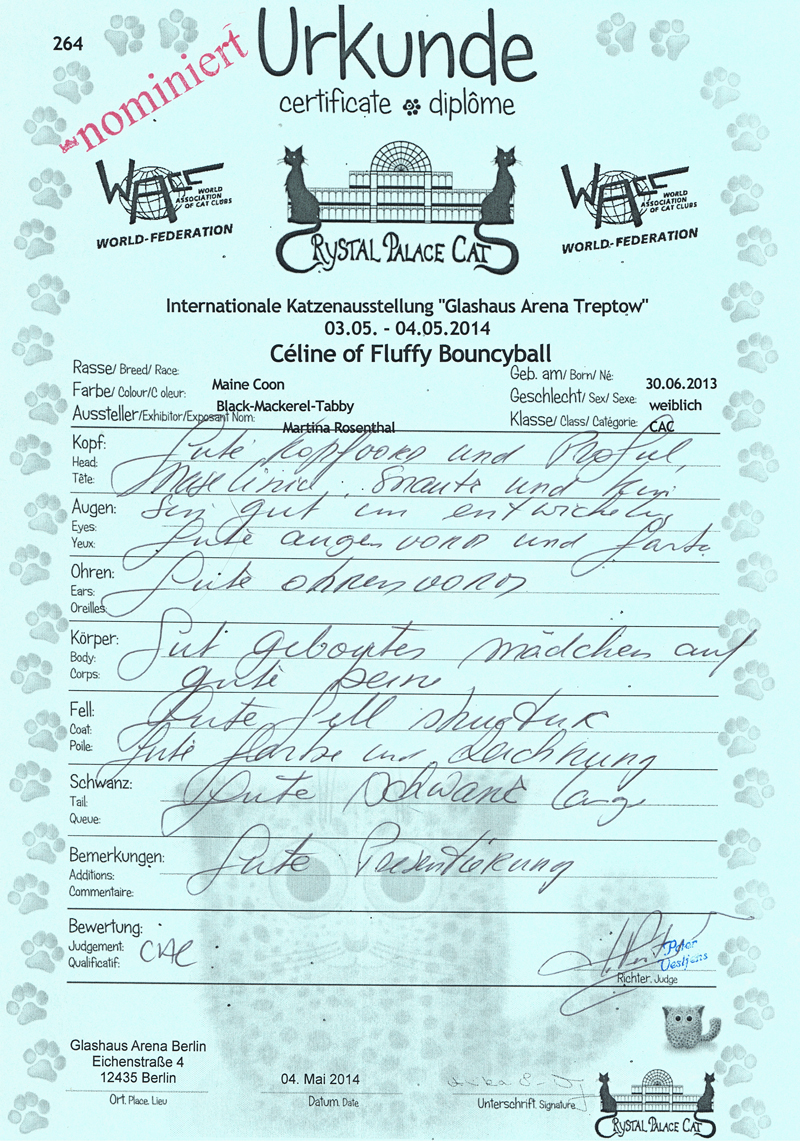 264
nominiert
Urkunde
certificate diplôme
WACC
WORLD
ASSOCIATION
OF CAT CLUBS
WORLD-FEDERATION
CRYSTAL PALACE CATS
WACC
WORLD
ASSOCIATION
OF CAT CLUBS
WORLD-FEDERATION
Internationale Katzenausstellung "Glashaus Arena Treptow"
03.05. - 04.05.2014
Céline of Fluffy Bouncyball
Rasse/ Breed/ Race: Maine Coon
Geb. am/ Born/ Né: 30.06.2013
Farbe/ Colour/C oleur: Black-Mackerel-Tabby
Geschlecht/ Sex/ Sexe: weiblich
Aussteller/Exhibitor/Exposant Nom: Martina Rosenthal
Klasse/ Class/ Catégorie: CAC
Kopf: Gute Kopfvorm und Profil,
Head:
Tête: Snaute und Kin
Augen: Sin gut im entwickelung
Eyes:
Yeux: Gute augen vorm und farbe
Ohren: Gute ohren vorm
Ears:
Oreilles:
Körper: Gut geboutes mädchen auf
Body:
Corps: gute beine
Fell: Gute fell struktur
Coat:
Poile: Gute farbe und Zeichnung
Schwanz: Gute schwanz lange
Tail:
Queue:
Bemerkungen: Gute Presentierung
Additions:
Commentaire:
Bewertung:
Judgement: CAC
Qualificatif:
Peter
Richter. Judge
Glashaus Arena Berlin
Eichenstraße 4
12435 Berlin
Ort. Place. Lieu
04. Mai 2014
Datum. Date
Unterschrift. Signature.
CRYSTAL PALACE CATS